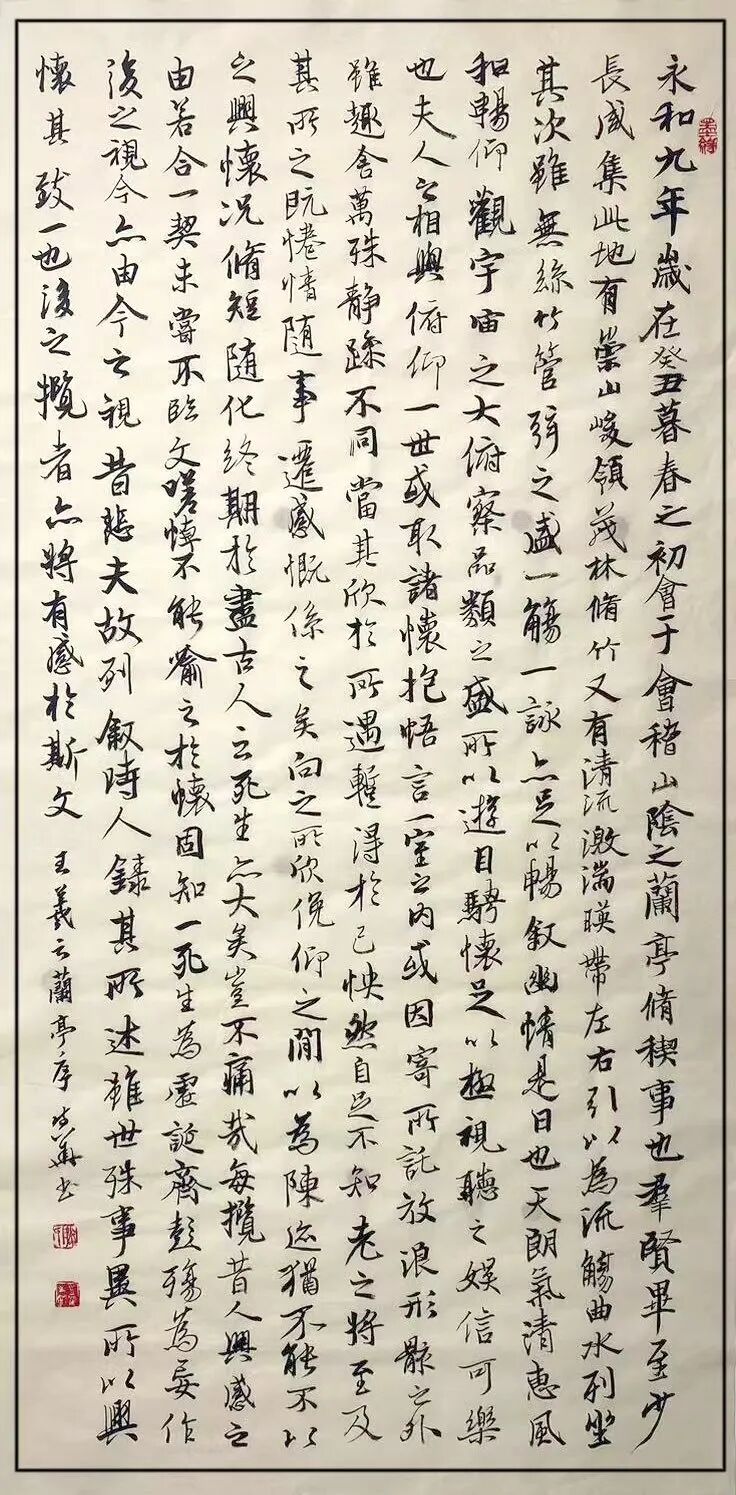 永和九年歲在癸丑暮春之初會于會稽山陰之蘭亭脩稧事也羣賢畢至少
長咸集此地有崇山峻領茂林脩竹又有清流激湍暎帶左右引以為流觴曲水列坐
其次雖無絲竹管弦之盛一觴一詠亦足以暢敘幽情是日也天朗氣清惠風
和暢仰觀宇宙之大俯察品類之盛所以遊目騁懷足以極視聽之娛信可樂
也夫人之相與俯仰一世或取諸懷抱悟言一室之內或因寄所託放浪形骸之外
雖趣舍萬殊靜躁不同當其欣於所遇暫得於己怏然自足不知老之將至及
其所之既惓情隨事遷感慨係之矣向之所欣俛仰之閒以為陳迹猶不能不以
之興懷況脩短隨化終期於盡古人云死生亦大矣豈不痛哉每攬昔人興感之
由若合一契未嘗不臨文嗟悼不能喻之於懷固知一死生為虛誕齊彭殤為妄作
後之視今亦由今之視昔悲夫故列敘時人錄其所述雖世殊事異所以興
懷其致一也後之攬者亦將有感於斯文 王羲之蘭亭序 書